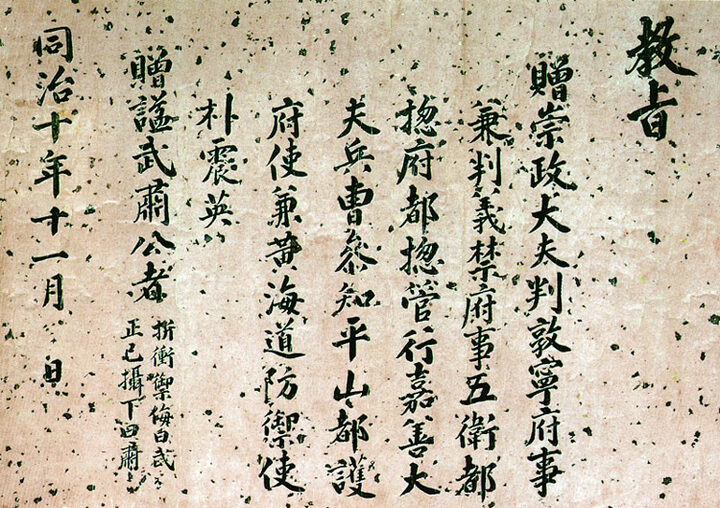 教旨
贈崇政大夫判敦寧府事
兼判義禁府事五衛都
揔府都揔管行嘉善大
夫兵曹參知平山都護
府使兼黃海道防禦使
朴震英
贈謚武肅公者
折衝禦侮曰武
正己攝下曰肅
同治十年十一月 日